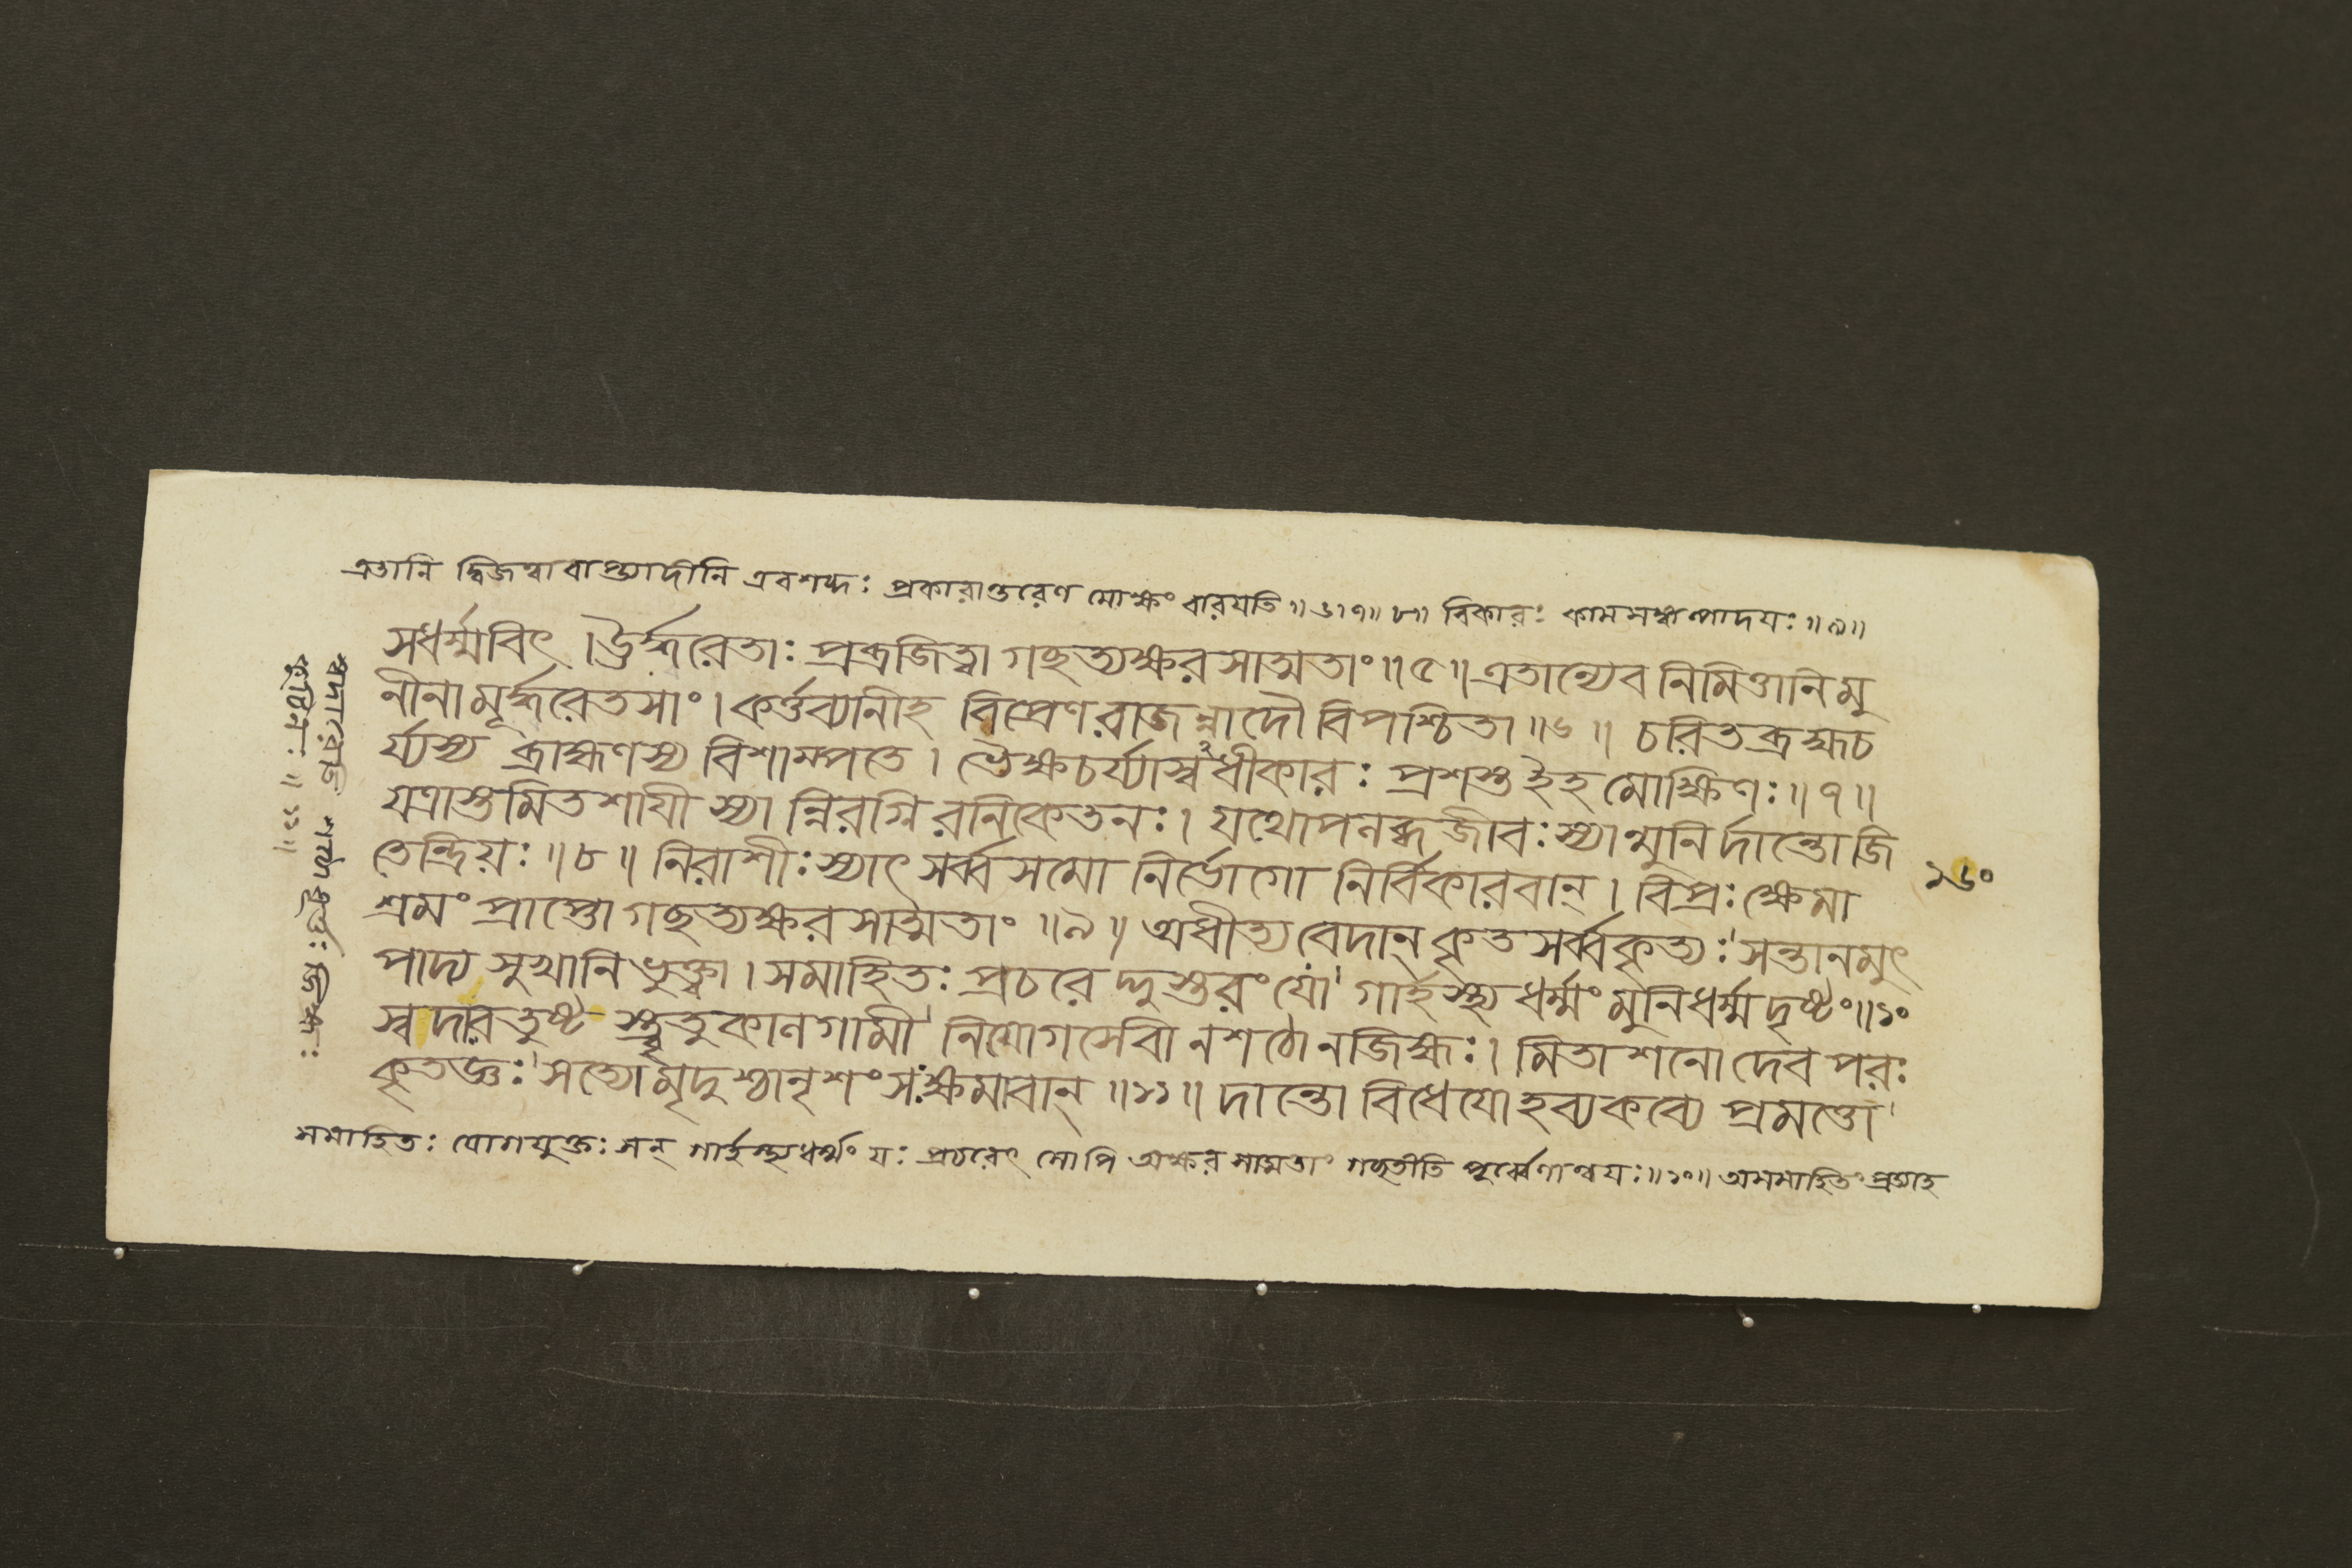 এতানি দ্বিজত্বাবাপ্ত্যাদীনি এবশব্দঃ প্রকারান্তরেণ মোক্ষং বারযতি ॥৬॥৭॥ ৮॥ বিকারঃ কামসঙ্কল্পাদযঃ ॥৯॥
সধর্ম্মবিৎ । ঊর্দ্ধরেতাঃ প্রব্রজিত্বা গছত্যক্ষরসাত্মতাং ॥৫॥ এতান্যেব নিমিত্তানি মু
নীনামূর্দ্ধরেতসাং । কর্ত্তব্যানীহ বিপ্রেণ রাজন্নাদৌ বিপশ্চিতা ॥৬॥ চরিতব্রহ্মচ
র্য্যস্য ব্রাহ্মণস্য বিশাম্পতে । ভৈক্ষচর্য্যাস্বধীকারঃ প্রশস্ত ইহ মোক্ষিণঃ ॥৭॥
যত্রাস্তমিতশাযী স্যান্নিরগ্নিরনিকেতনঃ । যথোপলব্ধজীবঃ স্যান্মুনির্দান্তো জি
তেন্দ্রিয়ঃ ॥৮॥ নিরাশীঃ স্যাৎ সর্ব্বসমো নির্ভোগো নির্বিকারবান্ । বিপ্রঃ ক্ষেমা
১৬০
শ্রমং প্রাপ্তো গছত্যক্ষরসাত্মতাং ॥৯॥ অধীত্য বেদান্ কৃতসর্ব্বকৃত্যঃ সন্তানমুৎ
পাদ্য সুখানি ভুক্ত্বা । সমাহিতঃ প্রচরেদ্দুস্তরং যো গার্হস্থ্যধর্ম্মং মুনিধর্ম্মদৃষ্টং ॥১০
স্বদারতুষ্টস্ত্বৃতুকালগামী নিযোগসেবী নশঠো নজিহ্মঃ । মিতাশনো দেবপরঃ
কৃতজ্ঞঃ সত্যো মৃদুশ্চানৃশংসঃ ক্ষমাবান্ ॥১১॥ দান্তো বিধেযো হব্যকব্যে প্রমত্তো
সমাহিতঃ যোগযুক্তঃ সন্ গার্হস্থ্যধর্ম্মং যঃ প্রচরেৎ সোপি অক্ষরসাত্মতাং গছতীতি পূর্ব্বেণান্বযঃ ॥১০॥ অসমাহিতং প্রত্যাহ
স্বদারেতি শঠো ধূর্ত্তঃ জিহ্মঃ
কুটিলঃ ॥১১॥